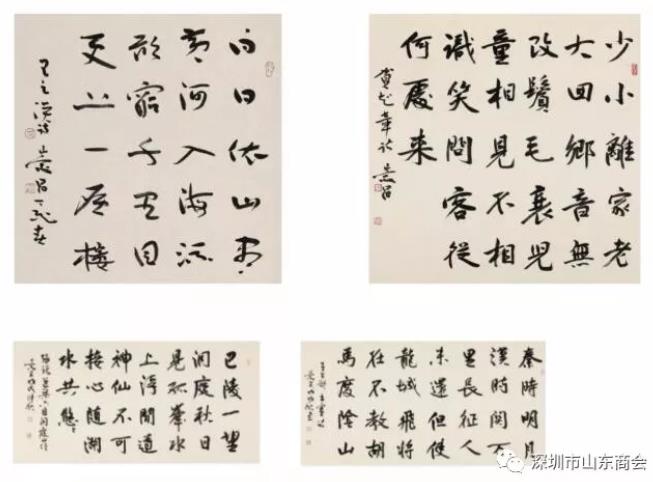 白日依山尽
黄河入海流
欲窮千里目
更上一层楼
王之涣詩
少小離家老
大回鄉音無
改鬢毛衰兒
童相見不相
識笑問客從
何處来
賀知章詩
巴陵一望
洞庭秋日
見孤峯水
上浮聞道
神仙不可
接心隨湖
水共悠悠
秦時明月
漢時関万
里長征人
未還但使
龍城飛将
在不教胡
馬度陰山
深圳市山东商会